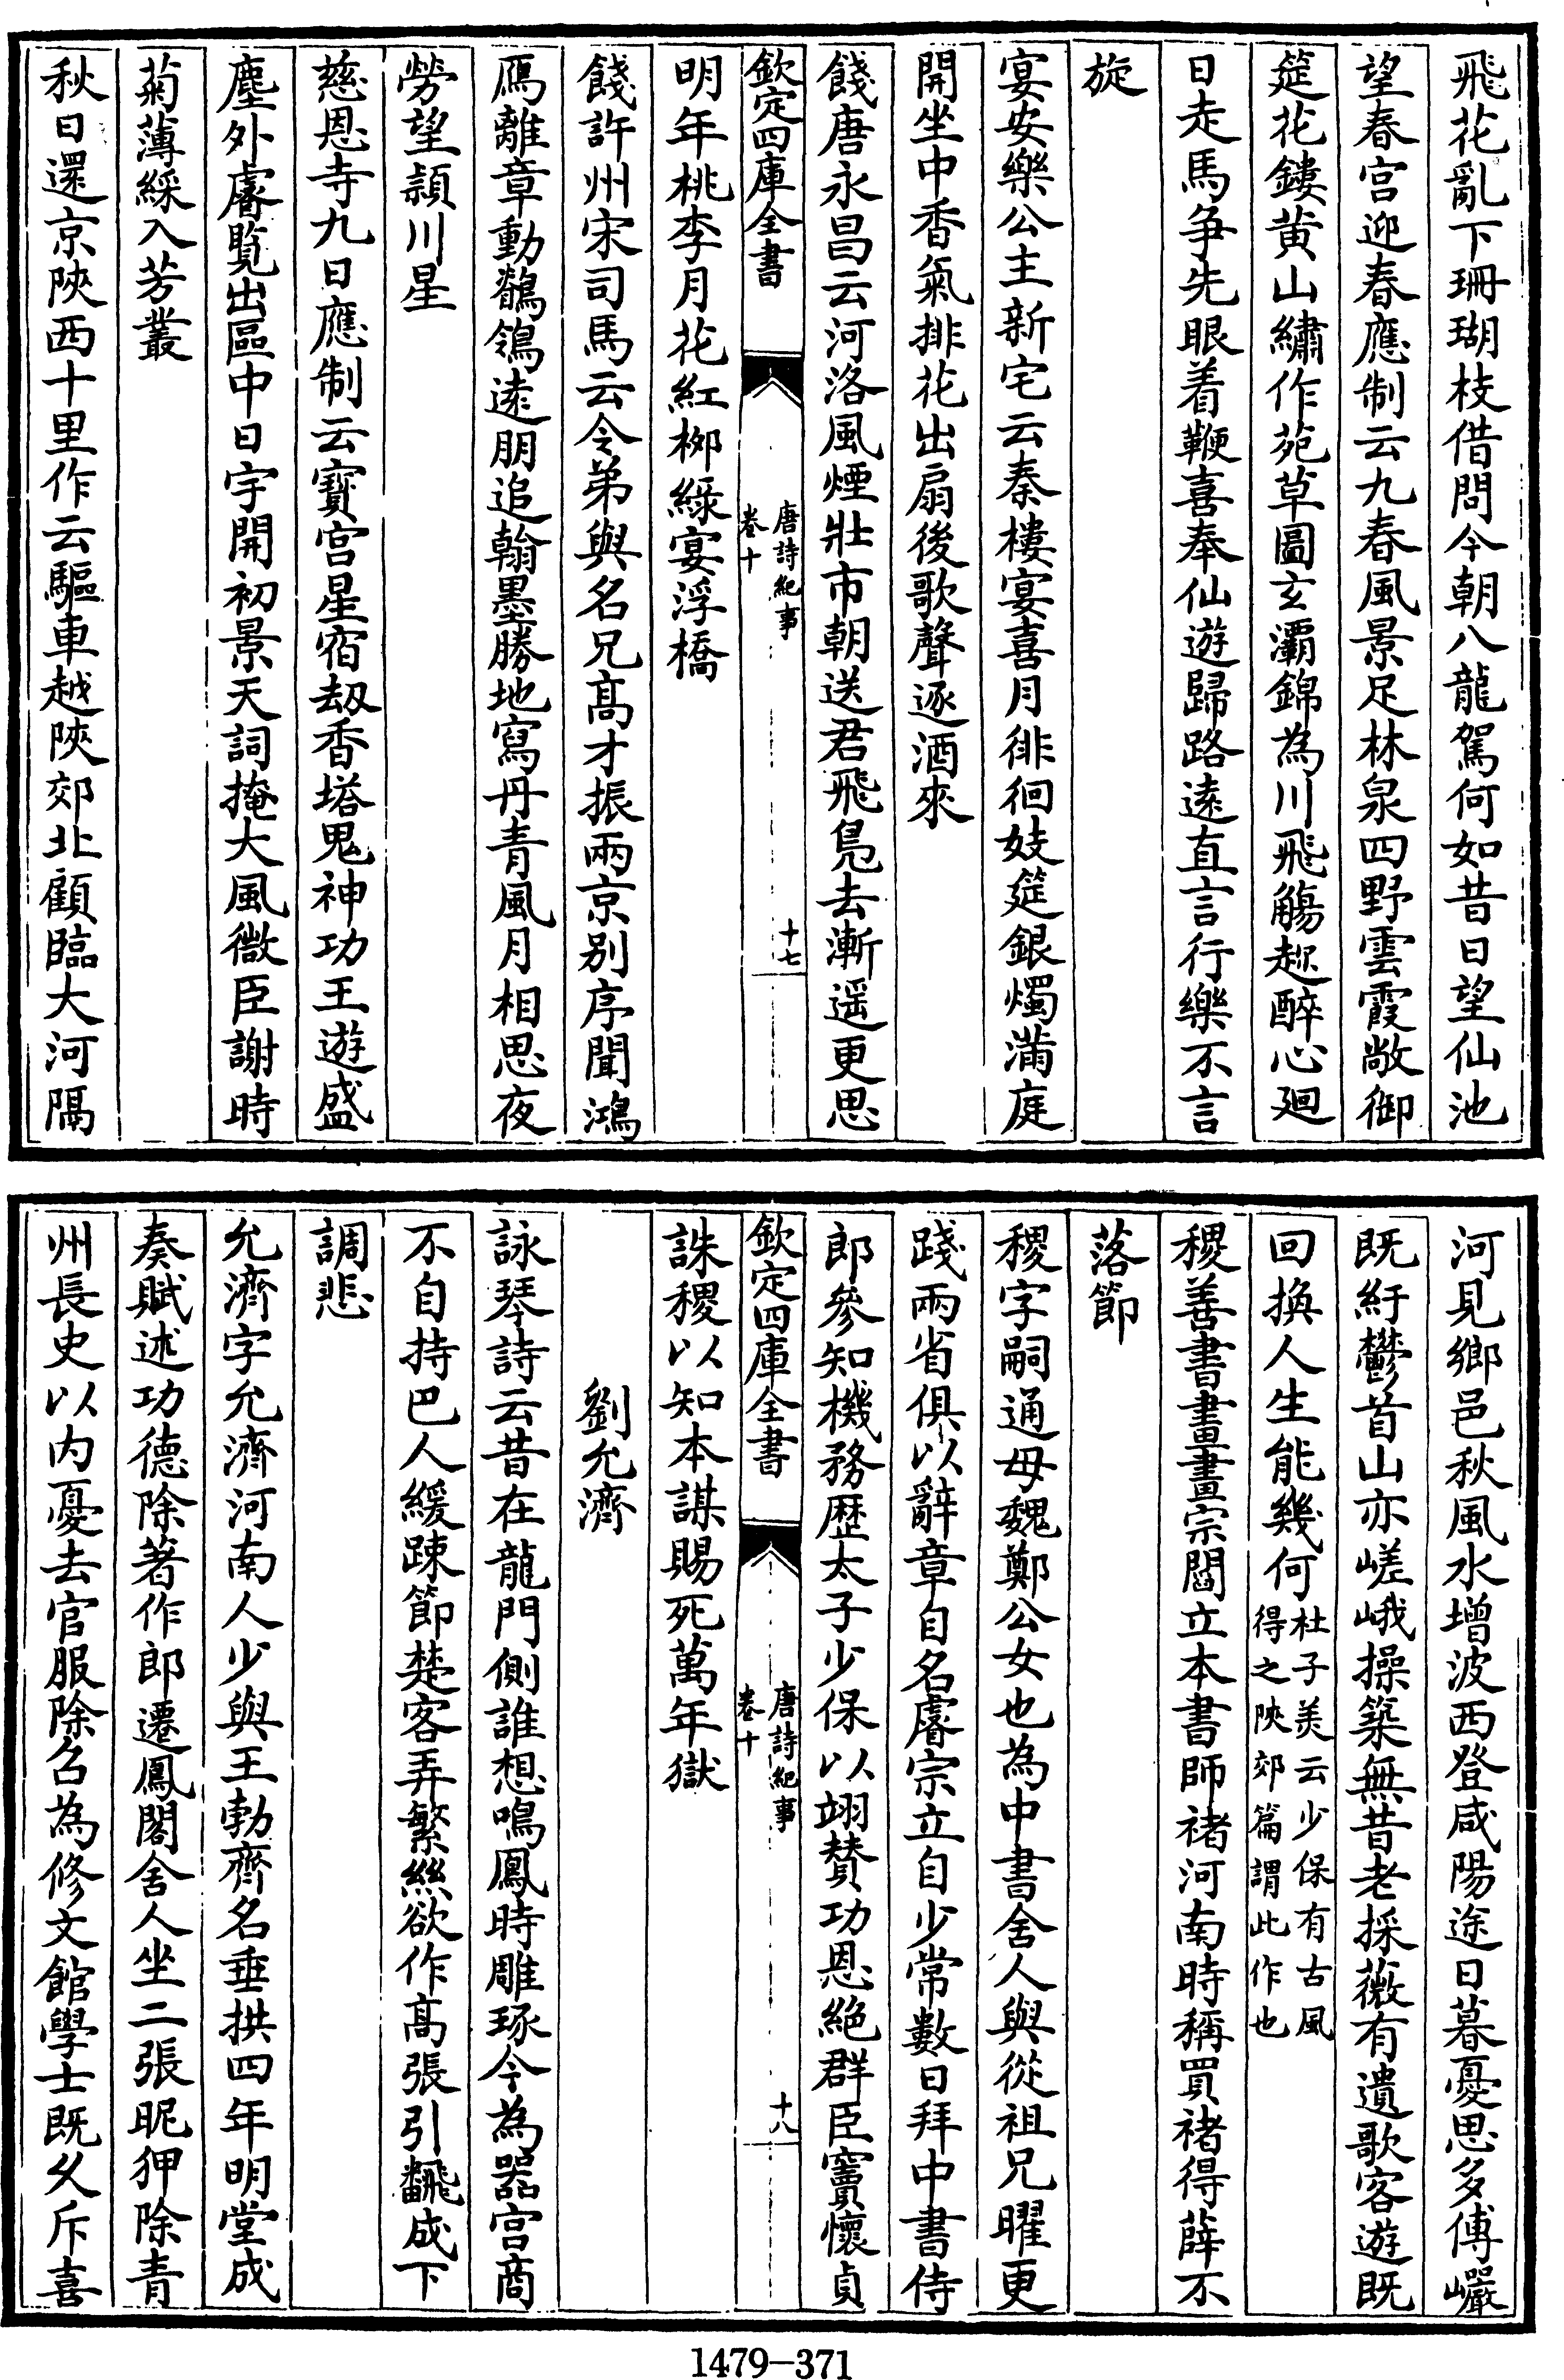 飛花亂下珊瑚枝借問今朝八龍駕何如昔日望仙池
望春宮迎春應制云九春風景足林泉四野雲霞敞御
筵花鏤黄山繡作苑草圖玄灞錦為川飛觴趂醉心廻
日走馬争先眼着鞭喜奉仙遊歸路遠直言行樂不言
旋
宴安樂公主新宅云秦樓宴喜月徘徊妓筵銀燭滿庭
開坐中香氣排花出扇後歌聲逐酒來
餞唐永昌云河洛風煙壯市朝送君飛鳧去漸遥更思
欽定四庫全書
唐詩紀事
卷十
十七
明年桃李月花紅栁綠宴浮橋
餞許州宋司馬云令弟與名兄高才振兩京别序聞鴻
鴈離章動鶺鴒逺朋追翰墨勝地寫丹青風月相思夜
勞望頴川星
慈恩寺九日應制云寳宮星宿刼香塔鬼神功王遊盛
塵外睿覧出區中日宇開初景天詞掩大風微臣謝時
菊薄綵入芳叢
秋日還京陜西十里作云驅車越陜郊北顧臨大河隔
河見鄉邑秋風水增波西登咸陽途日暮憂思多傅巖
既紆鬱首山亦嵯峨操築無昔老採薇有遺歌客遊既
回換人生能幾何杜子美云少保有古風得之陜郊篇謂此作也
稷善書畫畫宗閻立本書師褚河南時稱買褚得薛不
落節
稷字嗣通母魏鄭公女也為中書舍人與從祖兄曜更
踐兩省俱以辭章自名睿宗立自少常數日拜中書侍
郎參知機務歴太子少保以翊賛功恩絶群臣竇懐貞
欽定四庫全書
唐詩紀事
卷十
十八
誅稷以知本謀賜死萬年獄
劉允濟
詠琴詩云昔在龍門側誰想鳴鳳時雕琢今為器宫商
不自持巴人緩踈節楚客弄繁絲欲作高張引翻成下
調悲
允濟字允濟河南人少與王勃齊名垂拱四年明堂成
奏賦述功德除著作郎遷鳳閣舍人坐二張昵狎除青
州長史以内憂去官服除召為修文館學士既久斥喜
1479-371